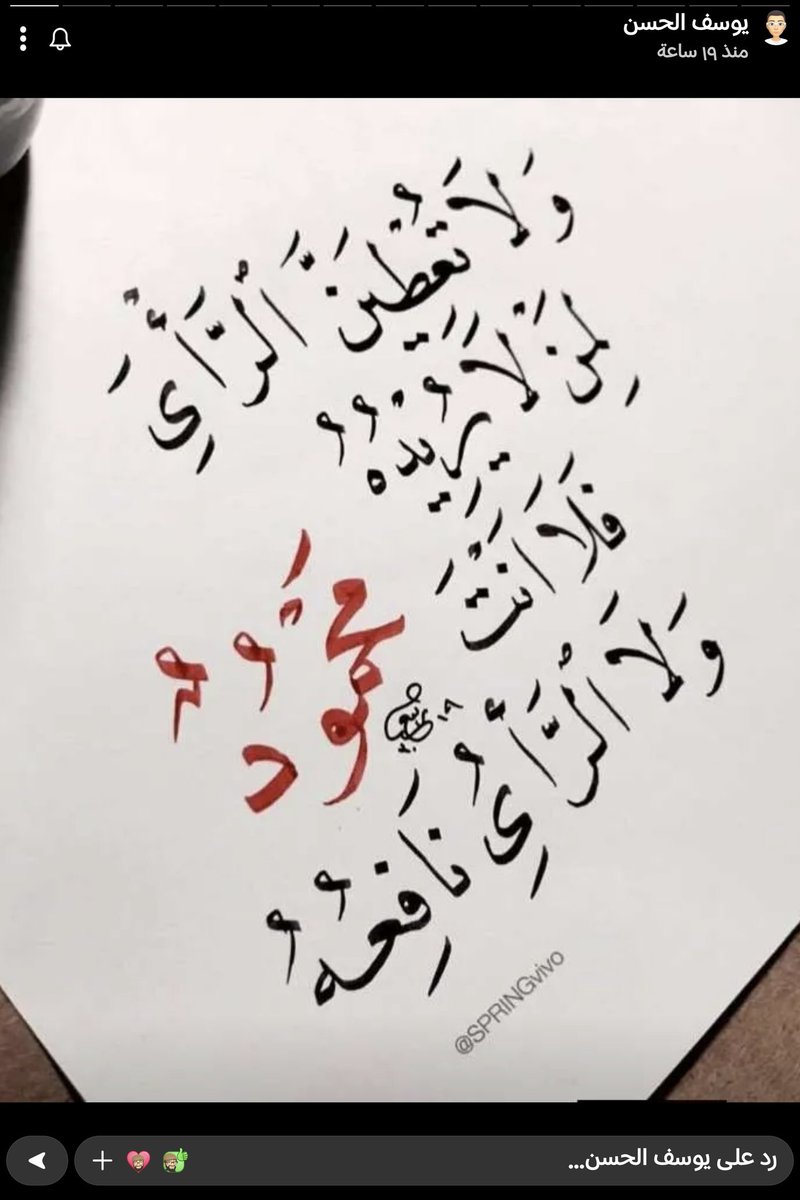 يوسف الحسن
منذ ١٩ ساعة
وَلَا تُعْطِيَنَّ الرَّأْيَ
لِمَنْ لَا يُرِيدُهُ
فَلَا أَنْتَ
مَحْمُودٌ
١٩
وَلَا الرَّأْيُ نَافِعُهُ
@SPRINGvivo
رد على يوسف الحسن...